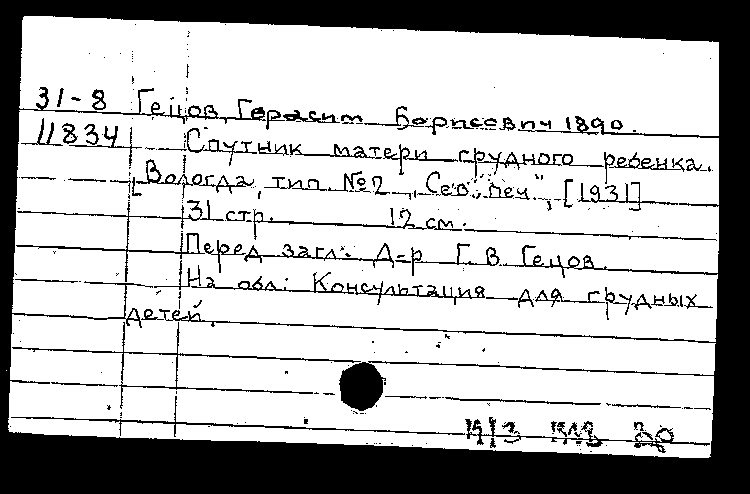 31-8 Гецов, Герасим Борисович 1890.
11834 Спутник матери грудного ребенка.
[Вологда, тип. №2 „Сев. печ", [1931]
31 стр. 12 см.
Перед загл.: Д-р Г. В. Гецов.
На обл: Консультация для грудных
детей.